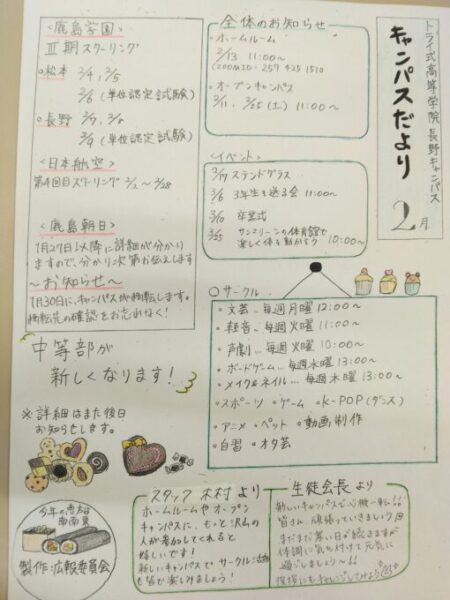 トライ式高等学院 長野キャンパス
キャンパスだより
2月
全体のお知らせ
・ホームルーム
2/13 11:00〜
(ZOOM ID: 257 425 1510
・オープンキャンパス
3/11, 3/25 (土) 11:00〜
<イベント>
ステンドグラス
3/6 3年生を送る会 11:00〜
3/10 卒業式
3/25 サンマリーンの体育館で
楽しく体を動かそう 10:00〜
<鹿島学園>
Ⅲ期スクーリング
・松本 2/4, 2/5
2/6 (単位認定試験)
・長野 2/7, 2/8
2/9 (単位認定試験)
<日本航空>
第4回目スクーリング 2/2〜2/28
<鹿島朝日>
1月27日以降に詳細が分かり
ますので、分かり次第お伝えします
〜お知らせ〜
1月30日に、キャンパスが移転します。
移転先の確認をお忘れなく!
中等部が
新しくなります!
※詳細はまた後日
お知らせします。
○サークル
・文芸…毎週月曜 12:00〜
・軽音…毎週火曜 11:00〜
・声劇…毎週火曜 10:00〜
・ボードゲーム…毎週水曜 13:00〜
・メイク&ネイル…毎週木曜 13:00〜
・スポーツ ・ゲーム ・K-POP(ダンス)
・アニメ ・ペット ・動画制作
・自習 ・オタ芸
今年の恵方は
南南東
製作:広報委員会
スタッフ 木村 より
ホームルームやオープン
キャンパスに、もっと沢山の
人が参加してくれると
嬉しいです!
新しいキャンパスでサークル活動
も皆で楽しみましょう!
生徒会長より
新しいキャンパスで心機一転!!
皆さん頑張っていきましょう
まだまだ寒い日が続きますが
体調に気を付けて元気に
過ごしましょう〜!!